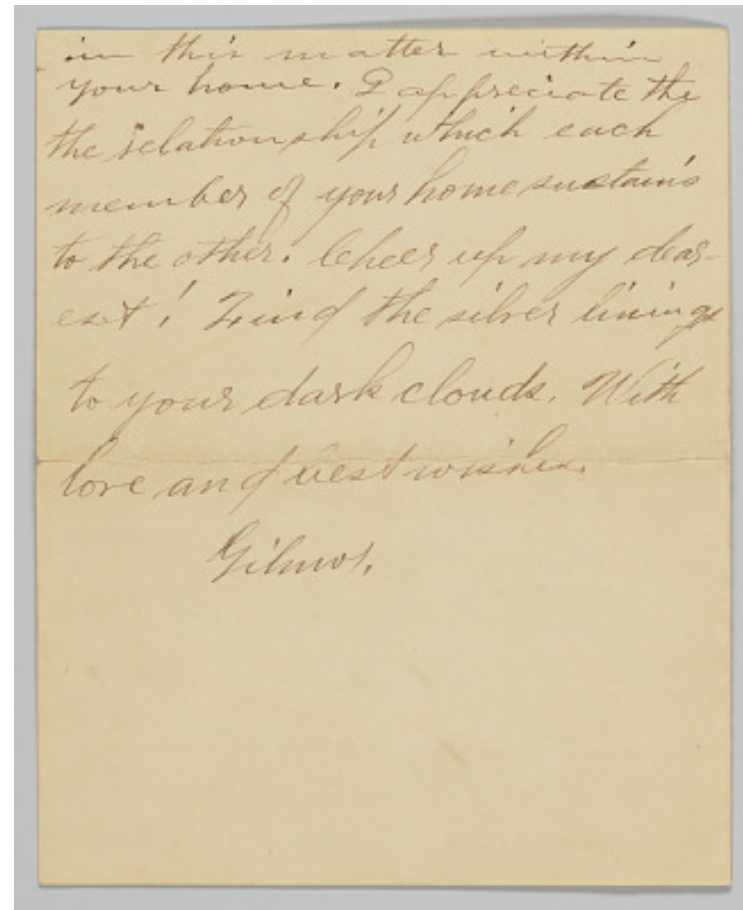 in this matter within
your home. I appreciate the
the relationship which each
member of your home sustains
to the other. Cheer up my dear-
est! Find the silver linings
to your dark clouds. With
love and best wishes.
Gilmor.